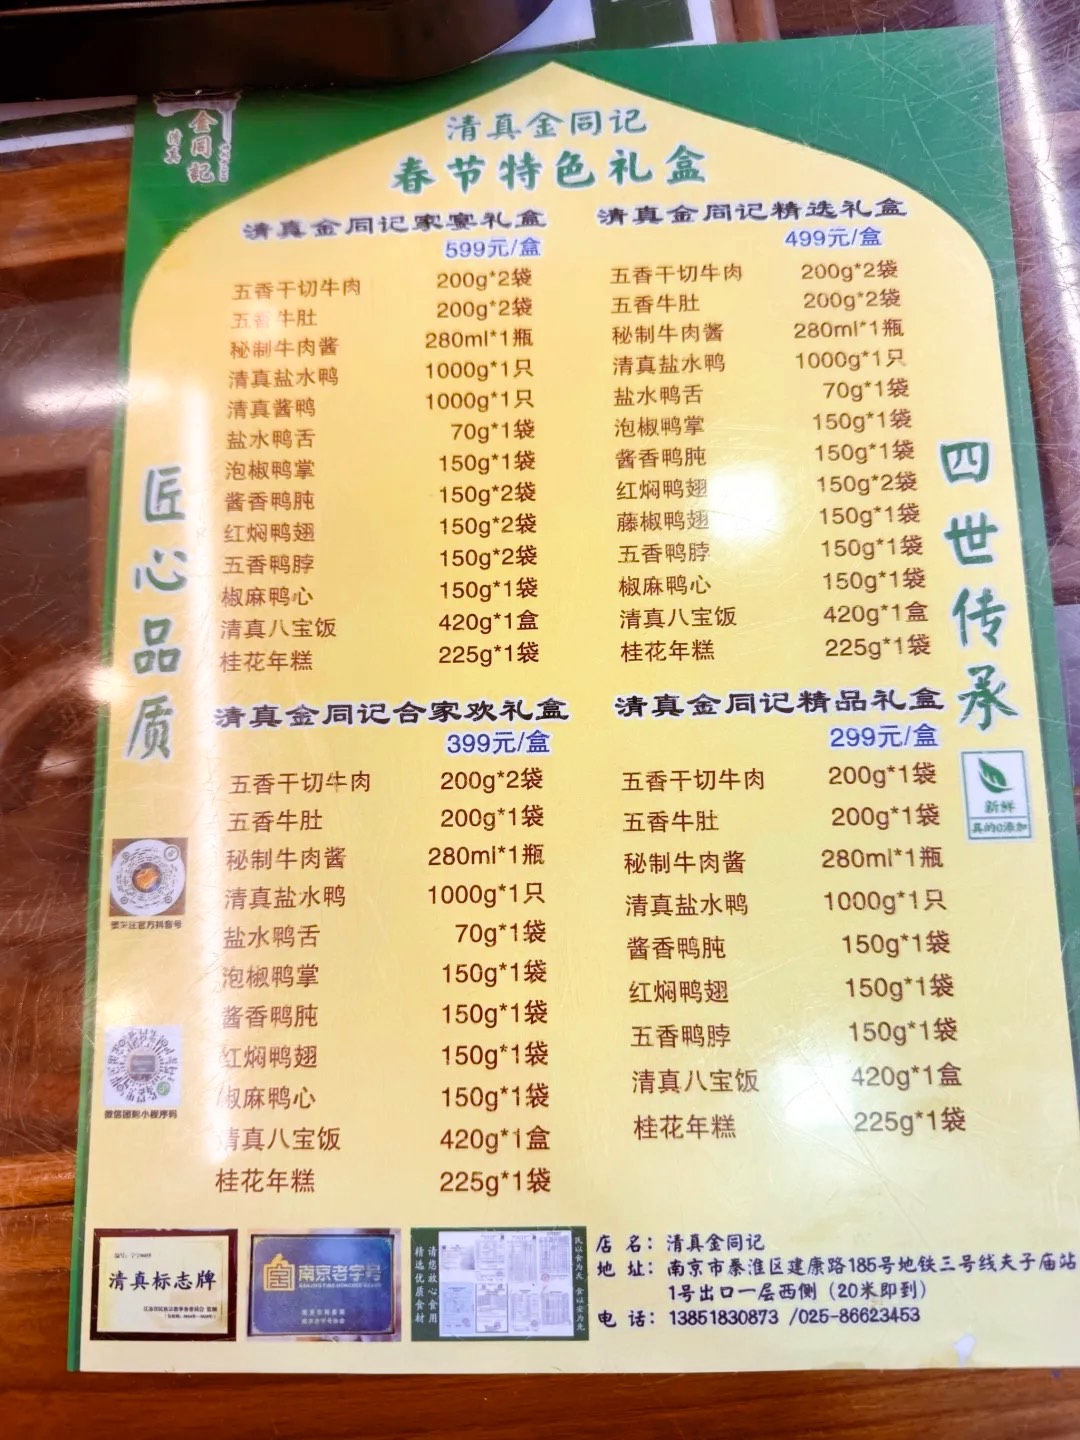 金同記
清真
清真金同记
春节特色礼盒
清真金同记家宴礼盒
599元/盒
五香干切牛肉 200g*2袋
五香牛肚 200g*2袋
秘制牛肉酱 280ml*1瓶
清真盐水鸭 1000g*1只
清真酱鸭 1000g*1只
盐水鸭舌 70g*1袋
泡椒鸭掌 150g*1袋
酱香鸭肫 150g*2袋
红焖鸭翅 150g*2袋
五香鸭脖 150g*2袋
椒麻鸭心 150g*1袋
清真八宝饭 420g*1盒
桂花年糕 225g*1袋
清真金同记精选礼盒
499元/盒
五香干切牛肉 200g*2袋
五香牛肚 200g*2袋
秘制牛肉酱 280ml*1瓶
清真盐水鸭 1000g*1只
盐水鸭舌 70g*1袋
泡椒鸭掌 150g*1袋
酱香鸭肫 150g*1袋
红焖鸭翅 150g*2袋
藤椒鸭翅 150g*1袋
五香鸭脖 150g*1袋
椒麻鸭心 150g*1袋
清真八宝饭 420g*1盒
桂花年糕 225g*1袋
清真金同记合家欢礼盒
399元/盒
五香干切牛肉 200g*2袋
五香牛肚 200g*1袋
秘制牛肉酱 280ml*1瓶
清真盐水鸭 1000g*1只
盐水鸭舌 70g*1袋
泡椒鸭掌 150g*1袋
酱香鸭肫 150g*1袋
红焖鸭翅 150g*1袋
椒麻鸭心 150g*1袋
清真八宝饭 420g*1盒
桂花年糕 225g*1袋
清真金同记精品礼盒
299元/盒
五香干切牛肉 200g*1袋
五香牛肚 200g*1袋
秘制牛肉酱 280ml*1瓶
清真盐水鸭 1000g*1只
酱香鸭肫 150g*1袋
红焖鸭翅 150g*1袋
五香鸭脖 150g*1袋
清真八宝饭 420g*1盒
桂花年糕 225g*1袋
匠心品质
四世传承
新鲜
真的0添加
官方抖音号
微信团购小程序码
清真标志牌
南京老字号
请您放心食用
精选优质食材
民以食为天 食以安为先
店 名：清真金同记
地 址：南京市秦淮区建康路185号地铁三号线夫子庙站
1号出口一层西侧（20米即到）
电 话：13851830873 /025-86623453